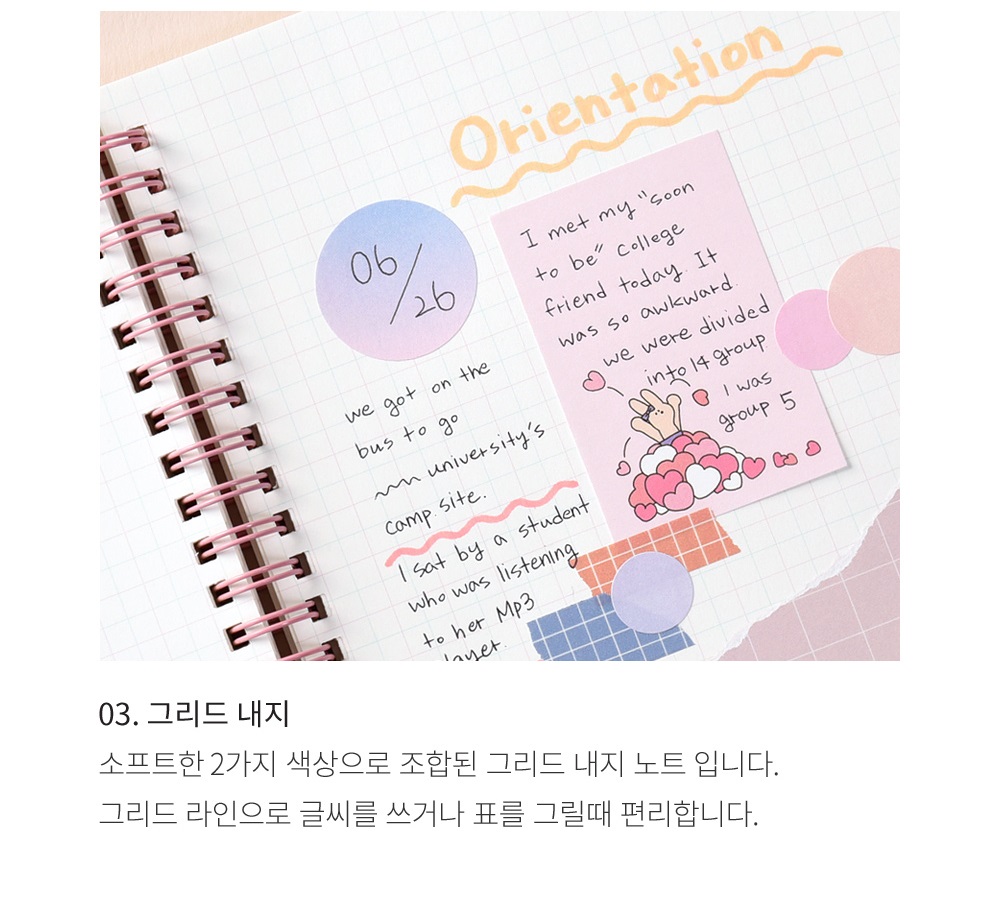 Orientation
06/26
I met my "soon
to be" college
friend today. It
was so awkward.
we were divided
into 14 group
I was
group 5
we got on the
bus to go
university's
camp.site.
I sat by a student
who was listening
to her Mp3
layer.
03. 그리드 내지
소프트한 2가지 색상으로 조합된 그리드 내지 노트 입니다.
그리드 라인으로 글씨를 쓰거나 표를 그릴때 편리합니다.